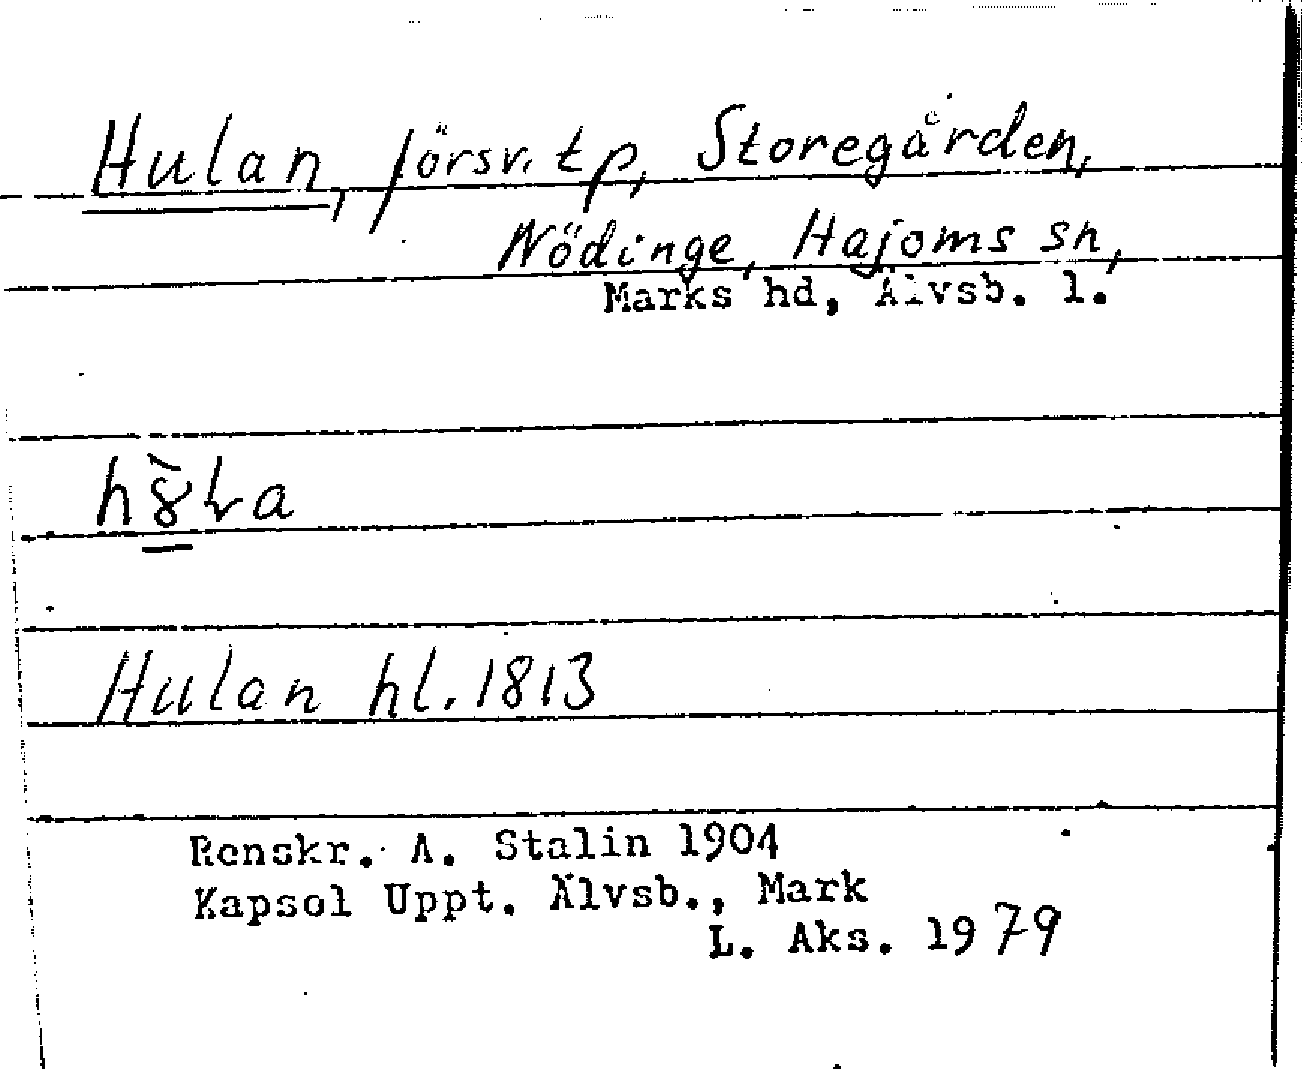 Hulan, försv. tp, Storegården,
Nödinge, Hajoms sn,
Marks hd, Älvsb. l.
Hulan hl. 1813
Renskr. A. Stalin 1904
Kapsel Uppt. Älvsb., Mark
L. Aks. 1979